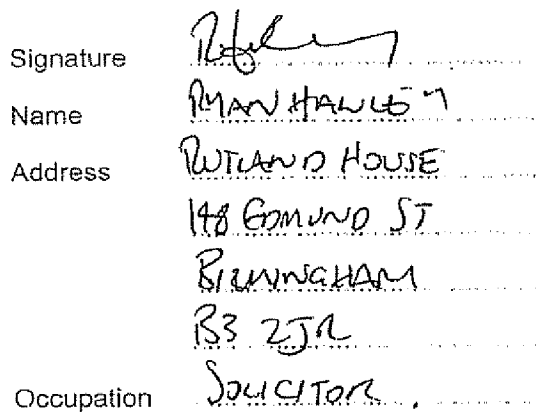 Signature
Name RYAN HAWLEY
Address RUTLAND HOUSE
148 EDMUND ST
BIRMINGHAM
B3 2JR
Occupation SOLICITOR.